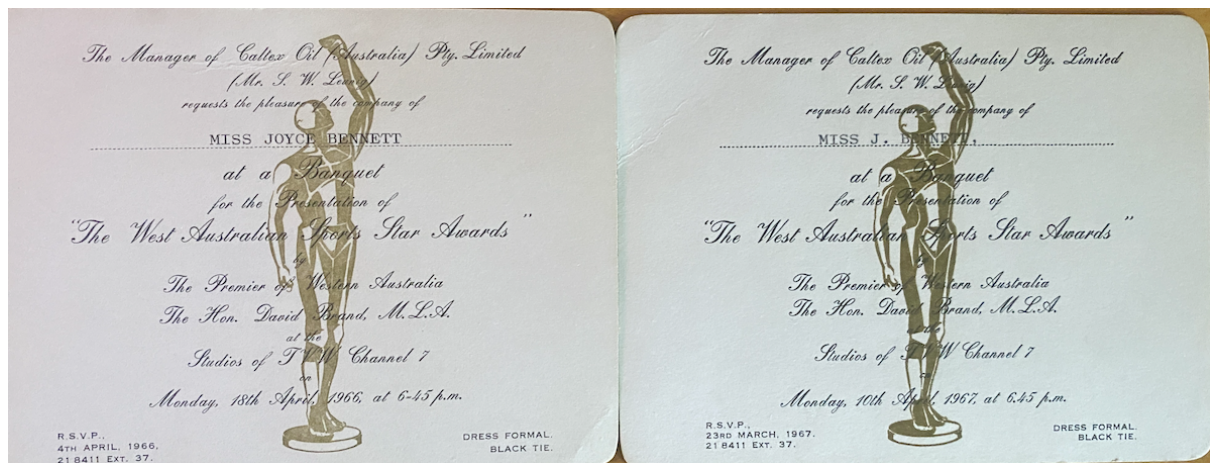 The Manager of Caltex Oil (Australia) Pty. Limited
(Mr. S. W. Lennig)
requests the pleasure of the company of
MISS JOYCE BENNETT
at a Banquet
for the Presentation of
"The West Australian Sports Star Awards"
by
The Premier of Western Australia
The Hon. David Brand, M.L.A.
at the
Studios of TVW Channel 7
on
Monday, 18th April, 1966, at 6-45 p.m.
R.S.V.P.,
4TH APRIL, 1966.
21 8411 EXT. 37.
DRESS FORMAL.
BLACK TIE.
The Manager of Caltex Oil (Australia) Pty. Limited
(Mr. S. W. Lennig)
requests the pleasure of the company of
MISS J. BENNETT.
at a Banquet
for the Presentation of
"The West Australian Sports Star Awards"
by
The Premier of Western Australia
The Hon. David Brand, M.L.A.
at the
Studios of TVW Channel 7
on
Monday, 10th April, 1967, at 6.45 p.m.
R.S.V.P.,
23RD MARCH, 1967.
21 8411 EXT. 37.
DRESS FORMAL.
BLACK TIE.